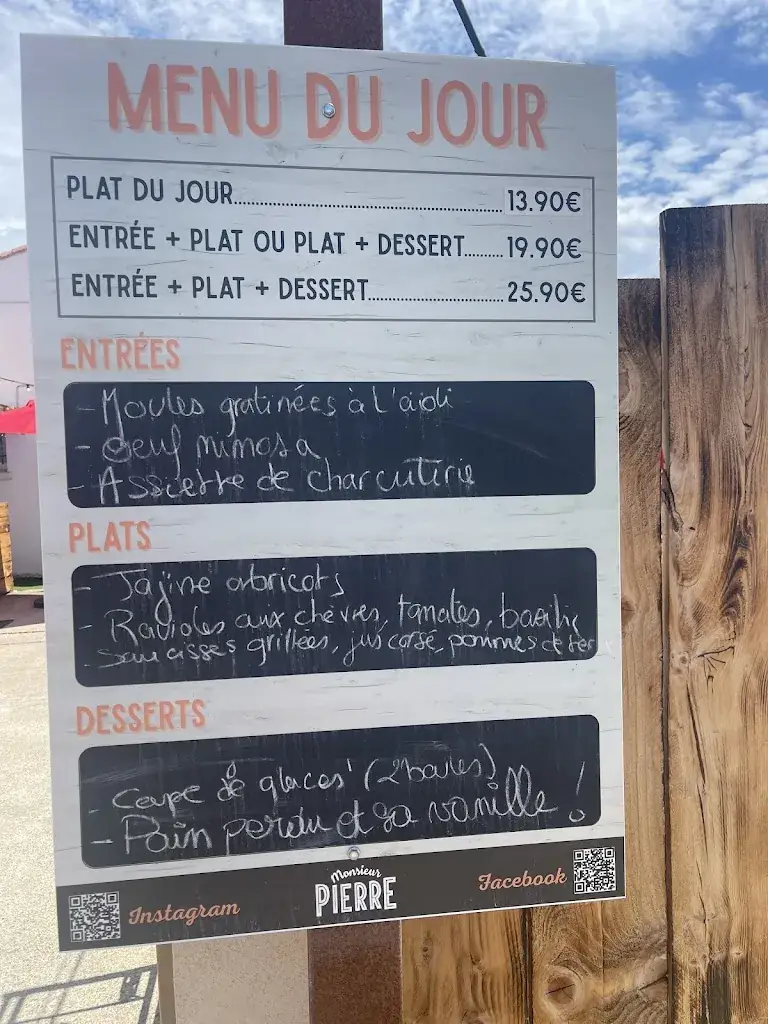 MENU DU JOUR
PLAT DU JOUR 13.90€
ENTRÉE + PLAT OU PLAT + DESSERT 19.90€
ENTRÉE + PLAT + DESSERT 25.90€
ENTRÉES
- Moules gratinées à l'aïoli
- Oeuf mimosa
- Assiette de charcuterie
PLATS
- Tajine abricots
- Ravioles aux chèvres, tomates, basilic
- saucisses grillées, jus corsé, pommes de terre
DESSERTS
- Coupe de glaces (2 boules)
- Pain perdu et sa vanille !
Instagram
Monsieur
PIERRE
Facebook